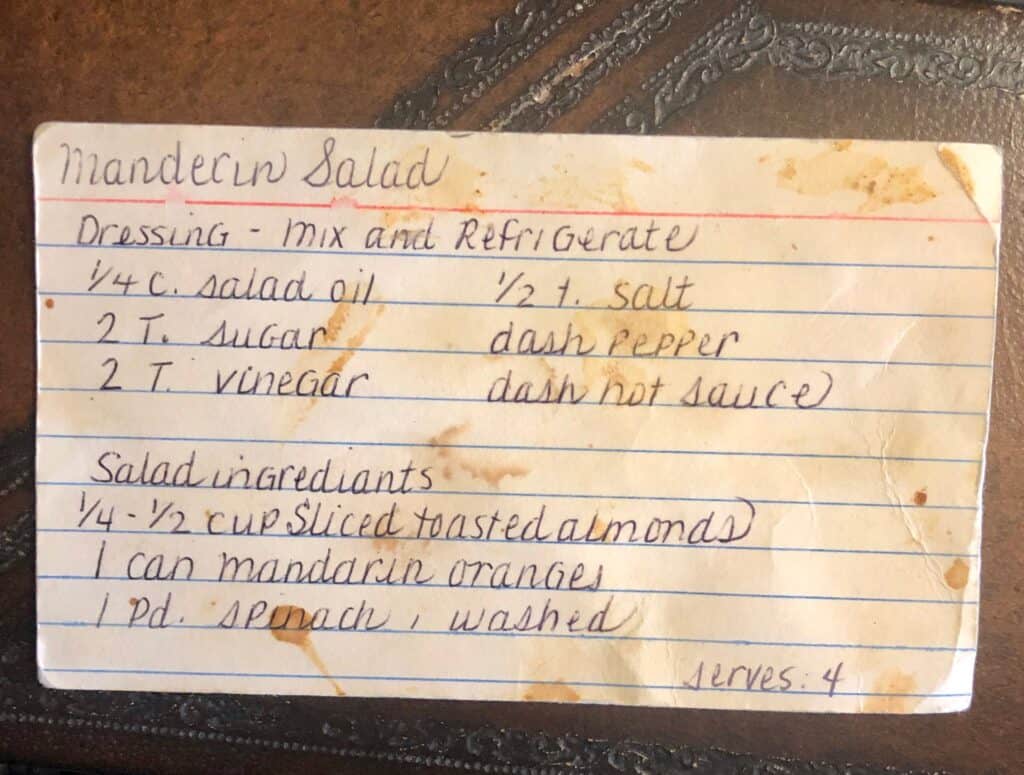 Manderin Salad
Dressing - Mix and Refrigerate
1/4 C. salad oil 1/2 t. salt
2 T. sugar dash pepper
2 T. vinegar dash hot sauce
Salad ingrediants
1/4 - 1/2 cup sliced toasted almonds
1 can mandarin oranges
1 pd. spinach, washed
serves: 4